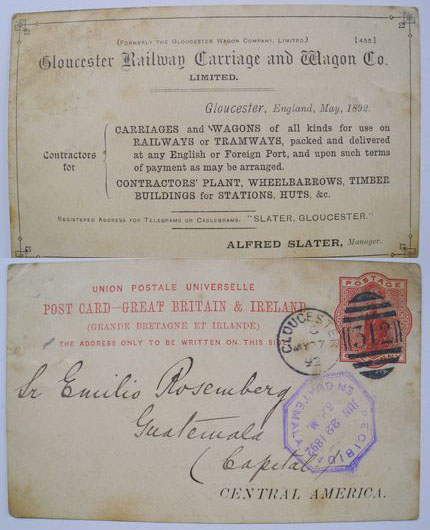 (Formerly the Gloucester Wagon Company, Limited.) [455]
Gloucester Railway Carriage and Wagon Co.
LIMITED.
Gloucester, England, May, 1892.
Contractors for
CARRIAGES and WAGONS of all kinds for use on
RAILWAYS or TRAMWAYS, packed and delivered
at any English or Foreign Port, and upon such terms
of payment as may be arranged.
CONTRACTORS' PLANT, WHEELBARROWS, TIMBER
BUILDINGS for STATIONS, HUTS, &c.
Registered Address for Telegrams or Cablegrams. "SLATER, GLOUCESTER."
ALFRED SLATER, Manager.
UNION POSTALE UNIVERSELLE
POST CARD—GREAT BRITAIN & IRELAND
(GRANDE BRETAGNE ET IRLANDE)
THE ADDRESS ONLY TO BE WRITTEN ON THIS SIDE
POSTAGE
GLOUCESTE
MY 27
92
312
Sr Emilio Rosemberg
Guatemala
(Capital)
CENTRAL AMERICA.
RECIBIDA
EN GUATEMALA
JUN 22 1892